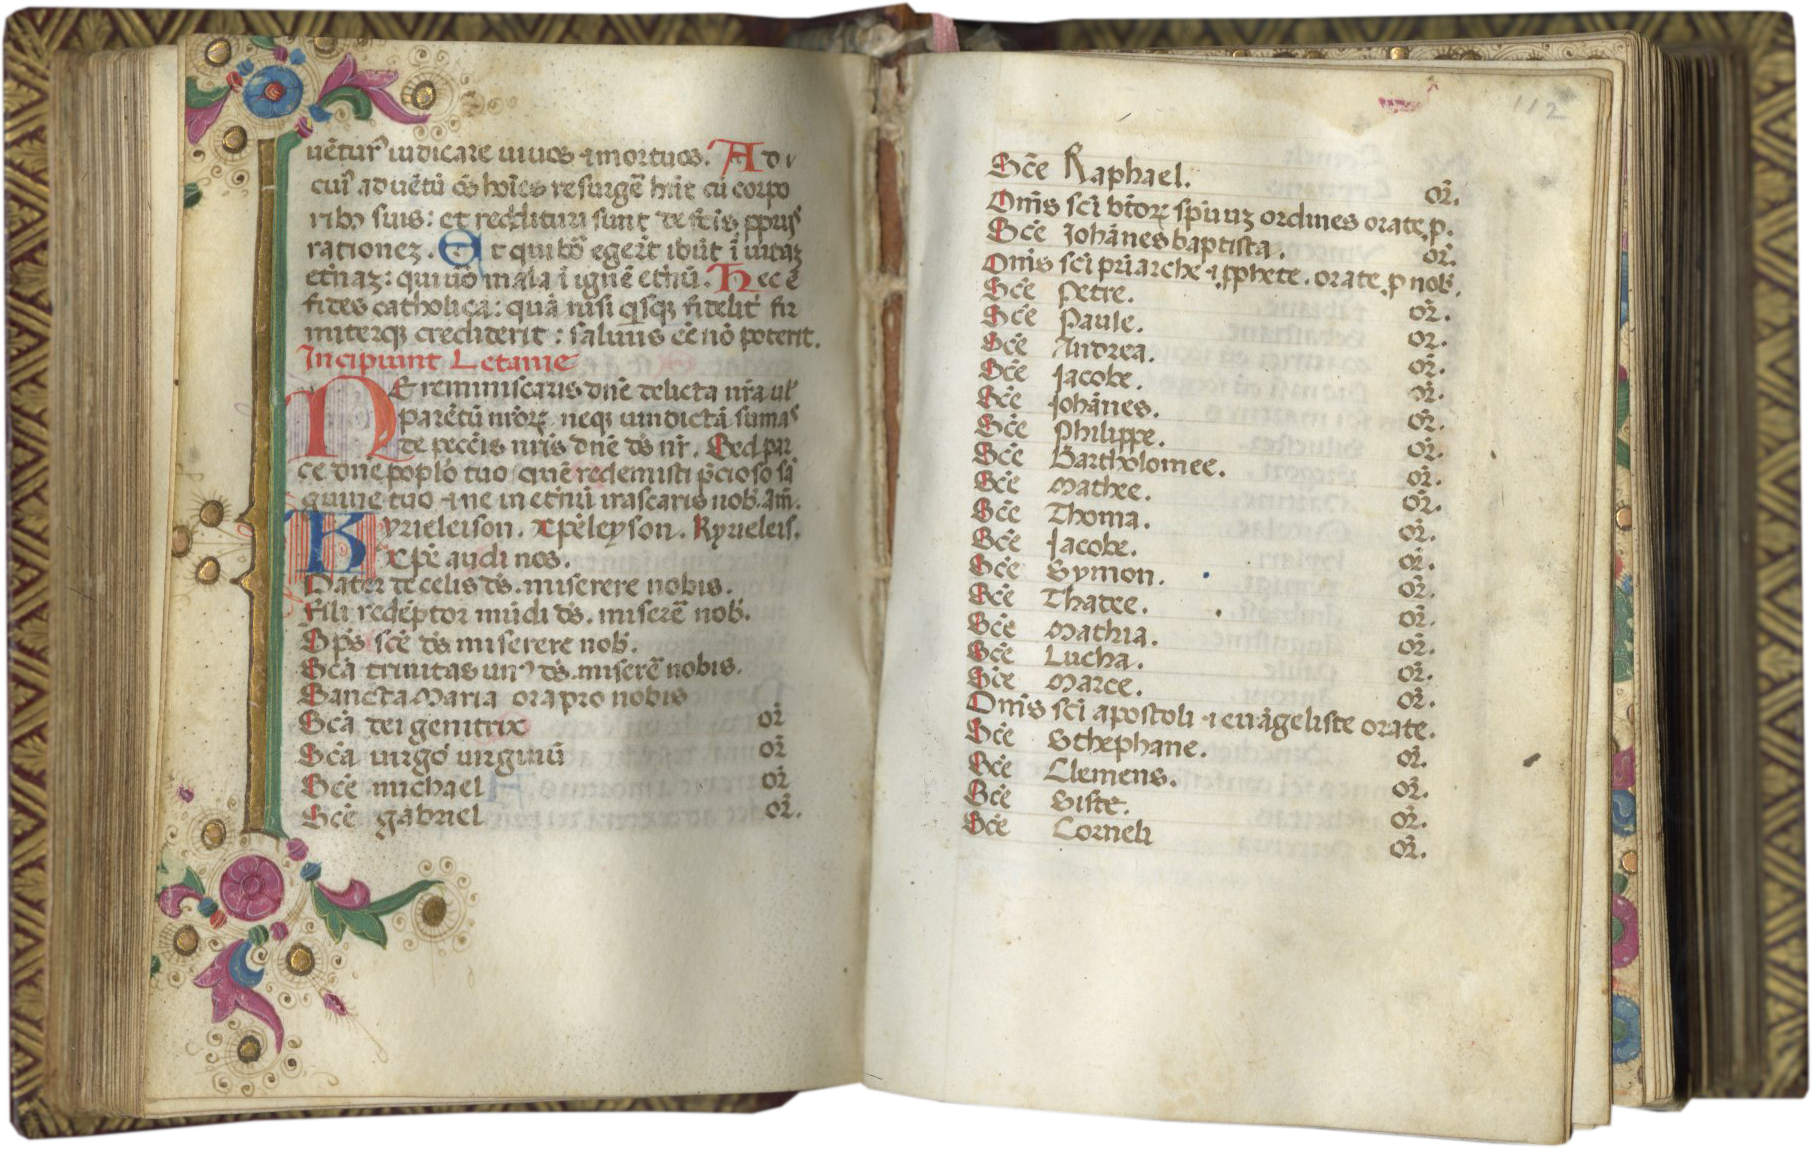 uētur᷒ iudicare uiuos ⁊ mortuos. Ad
cui᷒ aduētū oēs hoīes resurgē hn̄t cū corpo
rib᷒ suis: et reddituri sunt de fc̄is pp̄ijs
rationeȝ. Et qui bō egert̄ ibūt ī uitaȝ
et̄naȝ: qui uō mala ī ignē et̄nū. Hec ē
fides catholica: quā nisi qisqȝ fidelit̄ fir
miterqȝ crediderit: saluus eē nō poterit.
Incipiunt Letanie
NE reminiscaris dn̄e delicta nr̄a ul᷒
parētū nr̄oꝝ neqȝ uindictā sumas
de pecc̄is nr̄is dn̄e ds̄ nr̄. Sed par
ce dn̄e poplo tuo quē redemisti p̄cioso sā
guine tuo ⁊ ne in et̄nū irascaris nob̄. am̄.
Kyrieleison. xp̄eleyson. Kyrieleis.
xp̄e audi nos.
Pater de celis ds̄. miserere nobis.
Fili redēptor mūdi ds̄. miserē nob̄.
Sps̄ sc̄e ds̄ miserere nob̄.
Sc̄a trinitas un᷒ ds̄. miserē nobis.
Sancta Maria ora pro nobis
Sc̄a dei genitrix or̄
Sc̄a uirgo uirginū or̄
Sc̄e michael or̄
Sc̄e gabriel or̄.
112
Sc̄e Raphael. or̄.
Om̄s sc̄i bt̄oꝝ spūuȝ ordines orate p.
Sc̄e Johānes baptista. or̄.
Om̄s sc̄i pr̄iarche ⁊ pphete. orate p nob̄.
Sc̄e Petre. or̄.
Sc̄e Paule. or̄.
Sc̄e Andrea. or̄.
Sc̄e Jacobe. or̄.
Sc̄e Johānes. or̄.
Sc̄e Philippe. or̄.
Sc̄e Bartholomee. or̄.
Sc̄e Mathee. or̄.
Sc̄e Thoma. or̄.
Sc̄e Jacobe. or̄.
Sc̄e Symon. or̄.
Sc̄e Thadee. or̄.
Sc̄e Mathia. or̄.
Sc̄e Lucha. or̄.
Sc̄e Marce. or̄.
Om̄s sc̄i apostoli ⁊ euāgeliste orate.
Sc̄e Sthephane. or̄.
Sc̄e Clemens. or̄.
Sc̄e Siste. or̄.
Sc̄e Corneli or̄.